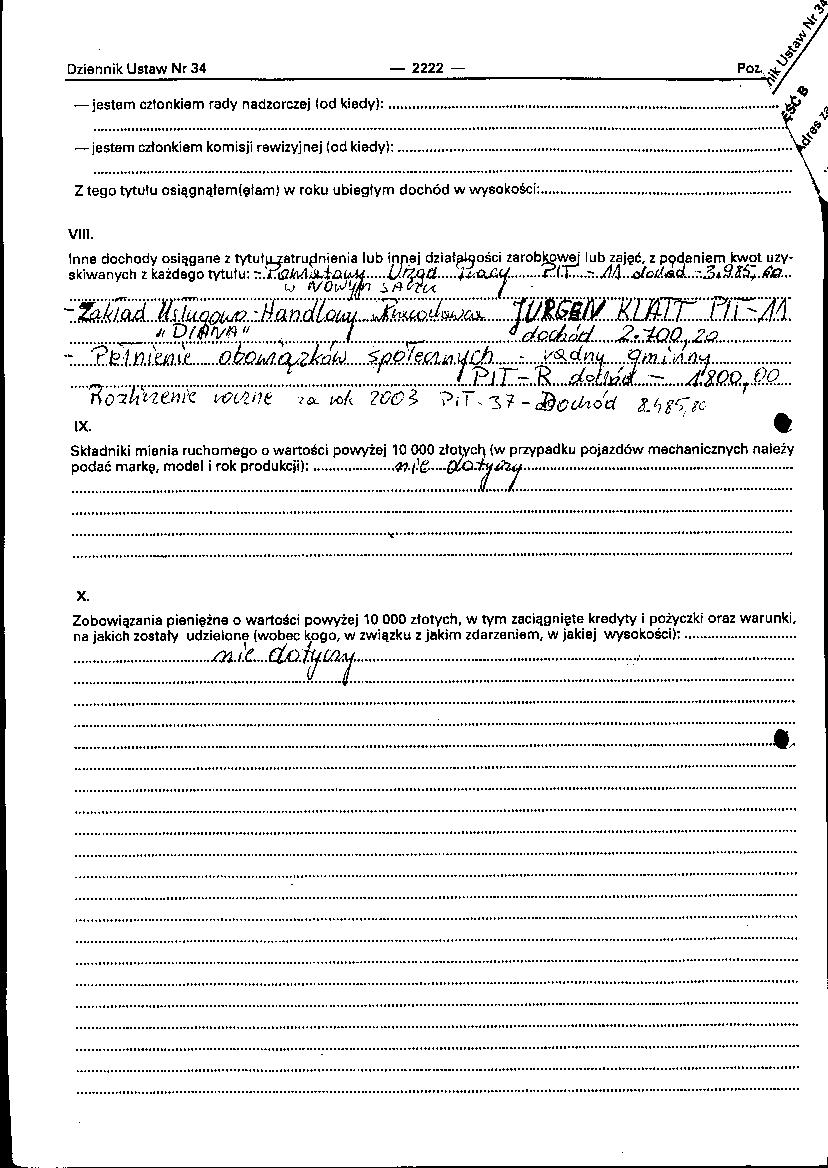 Dziennik Ustaw Nr 34 — 2222 — Poz.
nik Ustaw Nr 34
ĘŚĆ B
Adres za
— jestem członkiem rady nadzorczej (od kiedy):
— jestem członkiem komisji rewizyjnej (od kiedy):
Z tego tytułu osiągnąłem(ęłam) w roku ubiegłym dochód w wysokości:
VIII.
Inne dochody osiągane z tytułu zatrudnienia lub innej działalności zarobkowej lub zajęć, z podaniem kwot uzy-
skiwanych z każdego tytułu: - Powiatowy Urząd Pracy PIT - 11 dochód - 3.985,60
w NOWYM SĄCZU
- Zakład Usługowo-Handlowy JURGEN KLATT PIT-11
"DIANA" dochód 2.700,20
- Pełnienie obowiązków społecznych - radny gminny
PIT-R dochód - 1800,00
Rozliczenie roczne za rok 2003 PiT-37 - Dochód 8.485,80
IX.
Składniki mienia ruchomego o wartości powyżej 10 000 złotych (w przypadku pojazdów mechanicznych należy
podać markę, model i rok produkcji): nie dotyczy
X.
Zobowiązania pieniężne o wartości powyżej 10 000 złotych, w tym zaciągnięte kredyty i pożyczki oraz warunki,
na jakich zostały udzielone (wobec kogo, w związku z jakim zdarzeniem, w jakiej wysokości):
nie dotyczy